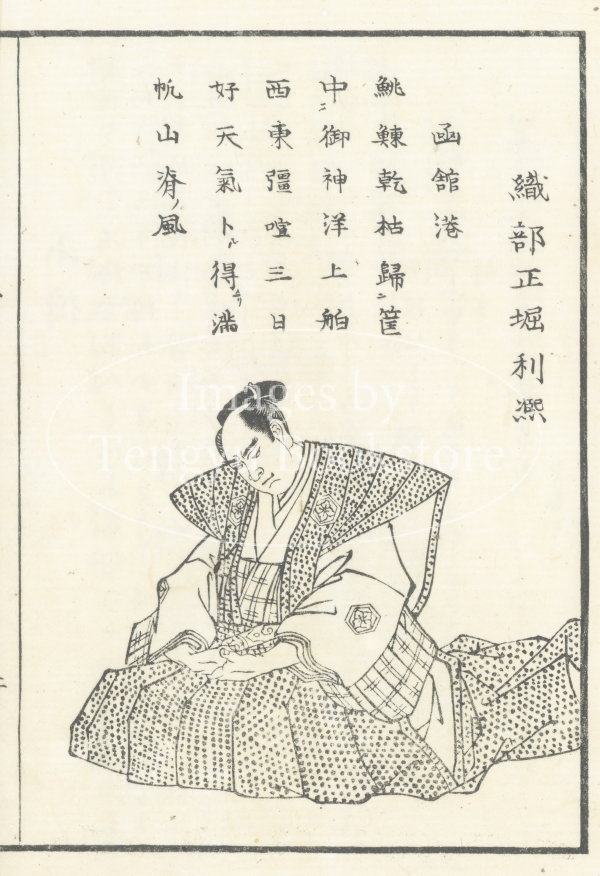 織部正堀利熈
函館港
鮡鰊乾枯歸ニ筐
中ニ御神洋上舶
西東彊喧三日
好天氣トル得满
帆山脊ノ風
Images by
Tengyu Bookstore